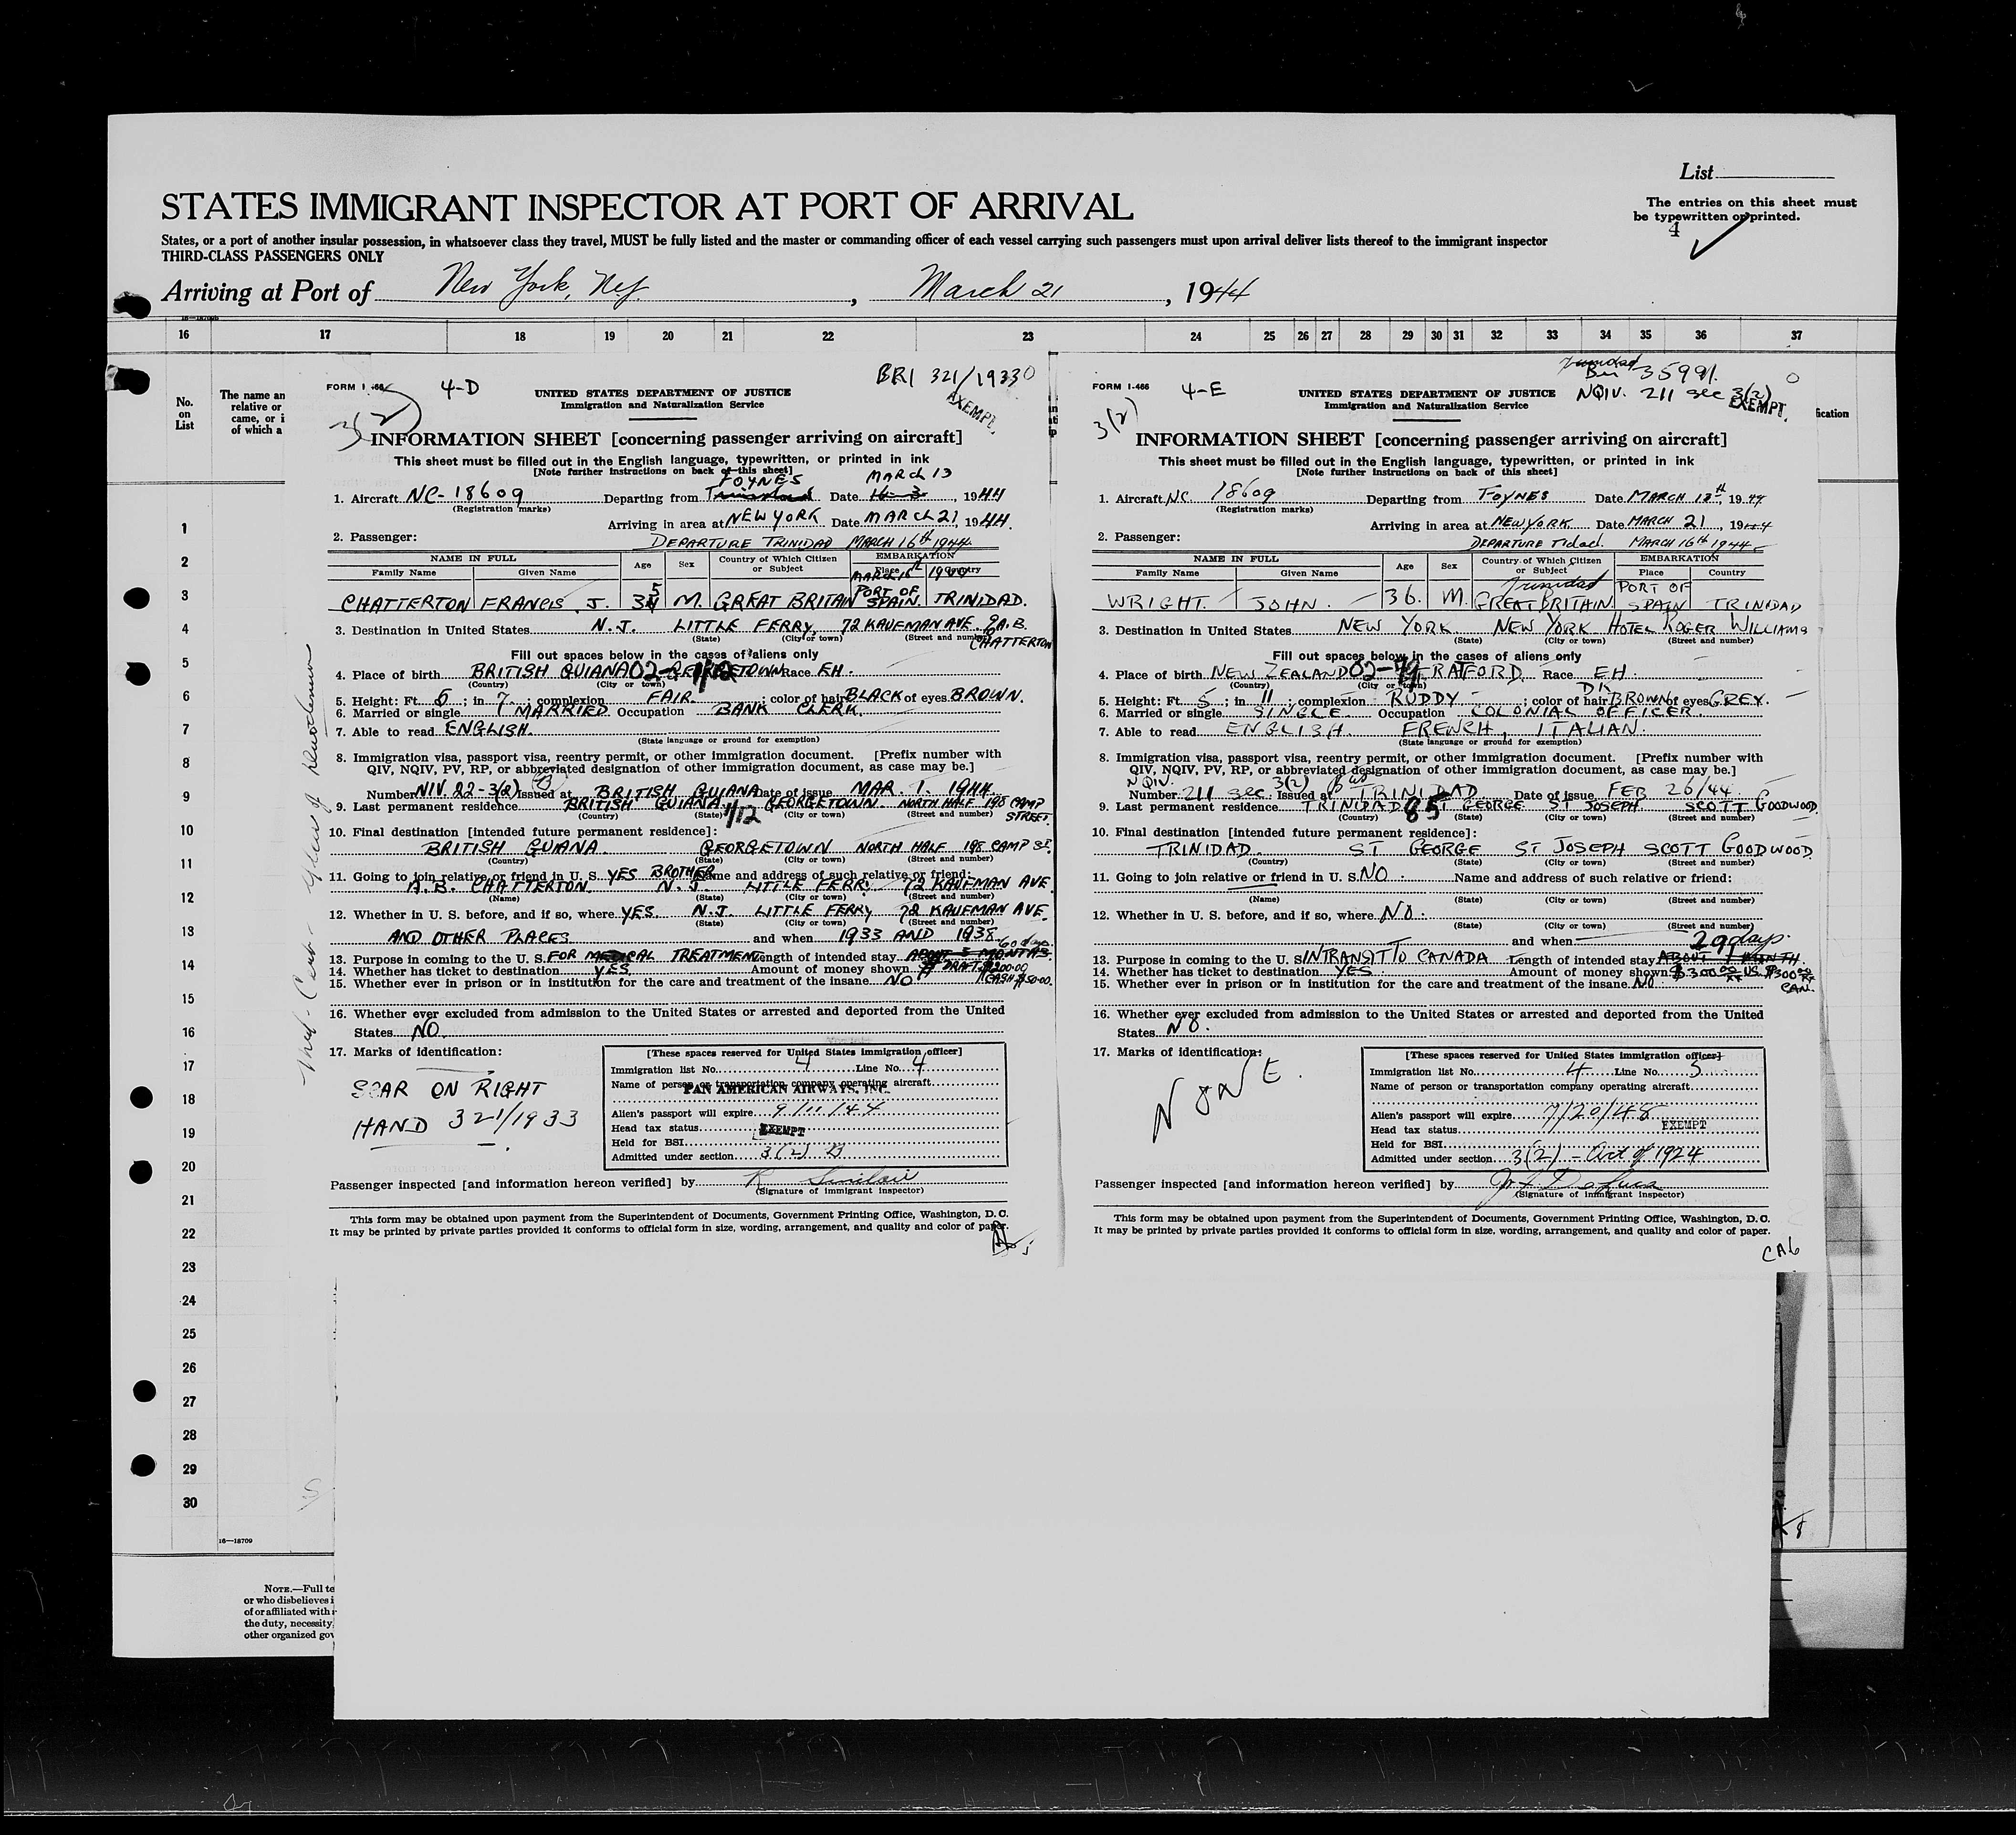 List
STATES IMMIGRANT INSPECTOR AT PORT OF ARRIVAL
The entries on this sheet must
be typewritten or printed.
4
States, or a port of another insular possession, in whatsoever class they travel, MUST be fully listed and the master or commanding officer of each vessel carrying such passengers must upon arrival deliver lists thereof to the immigrant inspector
THIRD-CLASS PASSENGERS ONLY
Arriving at Port of New York, N.Y. , March 21 , 1944
16 17 18 19 20 21 22 23 24 25 26 27 28 29 30 31 32 33 34 35 36 37
No.
on
List
The name an
relative or
came, or i
of which a
ication
1
2
3
4
5
6
7
8
9
10
11
12
13
14
15
16
17
18
19
20
21
22
23
24
25
26
27
28
29
30
16—18709
NOTE.—Full te
or who disbelieves i
of or affiliated with
the duty, necessity,
other organized gov
FORM I-466
4-D
BRI 321/19330
EXEMPT
3(2)
UNITED STATES DEPARTMENT OF JUSTICE
Immigration and Naturalization Service
INFORMATION SHEET [concerning passenger arriving on aircraft]
This sheet must be filled out in the English language, typewritten, or printed in ink
[Note further instructions on back of this sheet]
FOYNES MARCH 13
1. Aircraft NC-18609 Departing from Trinidad Date 16-3 , 1944
(Registration marks)
Arriving in area at NEW YORK Date MARCH 21, 1944.
2. Passenger: DEPARTURE TRINIDAD MARCH 16th 1944
NAME IN FULL Age Sex Country of Which Citizen or Subject EMBARKATION
Family Name Given Name Place Country
MARCH 16th 1944
CHATTERTON FRANCIS J. 35 M. GREAT BRITAIN PORT OF SPAIN. TRINIDAD.
3. Destination in United States N.J. LITTLE FERRY, 72 KAUFMAN AVE. A.B. CHATTERTON
(State) (City or town) (Street and number)
Fill out spaces below in the cases of aliens only
4. Place of birth BRITISH GUIANA 02-1/12 GEORGETOWN Race EH.
(Country) (City or town)
5. Height: Ft. 5 ; in 7. complexion FAIR. ; color of hair BLACK of eyes BROWN.
6. Married or single MARRIED Occupation BANK CLERK.
7. Able to read ENGLISH.
(State language or ground for exemption)
8. Immigration visa, passport visa, reentry permit, or other immigration document. [Prefix number with
QIV, NQIV, PV, RP, or abbreviated designation of other immigration document, as case may be.]
Number NIV. 22-3(2) Issued at BRITISH GUIANA Date of issue MAR. 1. 1944.
9. Last permanent residence BRITISH GUIANA. 1/12 GEORGETOWN. NORTH HALF 198 CAMP STREET.
(Country) (State) (City or town) (Street and number)
10. Final destination [intended future permanent residence]:
BRITISH GUIANA. GEORGETOWN NORTH HALF 198 CAMP ST.
(Country) (State) (City or town) (Street and number)
11. Going to join relative or friend in U. S. YES BROTHER Name and address of such relative or friend:
A.B. CHATTERTON. N.J. LITTLE FERRY 72 KAUFMAN AVE.
(Name) (State) (City or town) (Street and number)
12. Whether in U. S. before, and if so, where YES. N.J. LITTLE FERRY 72 KAUFMAN AVE.
(State) (City or town) (Street and number)
AND OTHER PLACES and when 1933 AND 1938
60 days
13. Purpose in coming to the U. S. FOR MEDICAL TREATMENT. Length of intended stay ABOUT 3 MONTHS.
14. Whether has ticket to destination YES. Amount of money shown DRAFT $200.00 CASH $50.00.
15. Whether ever in prison or in institution for the care and treatment of the insane NO
16. Whether ever excluded from admission to the United States or arrested and deported from the United
States NO.
17. Marks of identification:
SCAR ON RIGHT
HAND 321/1933
[These spaces reserved for United States immigration officer]
Immigration list No. 4 Line No. 4
Name of person or transportation company operating aircraft
PAN AMERICAN AIRWAYS, INC.
Alien's passport will expire 9/11/44
Head tax status EXEMPT
Held for BSI
Admitted under section 3(2)
Passenger inspected [and information hereon verified] by R Sinclair
(Signature of immigrant inspector)
This form may be obtained upon payment from the Superintendent of Documents, Government Printing Office, Washington, D. C.
It may be printed by private parties provided it conforms to official form in size, wording, arrangement, and quality and color of paper.
FORM I-466
4-E
Trinidad
Bri 35991.
NQIV. 211 sec 3(2)
EXEMPT
3(2)
UNITED STATES DEPARTMENT OF JUSTICE
Immigration and Naturalization Service
INFORMATION SHEET [concerning passenger arriving on aircraft]
This sheet must be filled out in the English language, typewritten, or printed in ink
[Note further instructions on back of this sheet]
1. Aircraft NC. 18609 Departing from FOYNES Date MARCH 13th, 1944
(Registration marks)
Arriving in area at NEW YORK Date MARCH 21 , 1944
2. Passenger: DEPARTURE T'dad. MARCH 16TH 1944
NAME IN FULL Age Sex Country of Which Citizen or Subject EMBARKATION
Family Name Given Name Place Country
Trinidad
WRIGHT. JOHN. 36. M. GREAT BRITAIN PORT OF SPAIN TRINIDAD
3. Destination in United States NEW YORK NEW YORK HOTEL ROGER WILLIAMS
(State) (City or town) (Street and number)
Fill out spaces below in the cases of aliens only
4. Place of birth NEW ZEALAND 02-79 STRATFORD Race EH
(Country) (City or town)
5. Height: Ft. 5 ; in 11 ; complexion RUDDY ; color of hair DK BROWN of eyes GREY.
6. Married or single SINGLE Occupation COLONIAL OFFICER.
7. Able to read ENGLISH. FRENCH, ITALIAN.
(State language or ground for exemption)
8. Immigration visa, passport visa, reentry permit, or other immigration document. [Prefix number with
QIV, NQIV, PV, RP, or abbreviated designation of other immigration document, as case may be.]
NQIV. 3(2)
Number 211 sec. Issued at TRINIDAD Date of issue FEB 26/44
9. Last permanent residence TRINIDAD 85 ST GEORGE ST JOSEPH SCOTT GOODWOOD
(Country) (State) (City or town) (Street and number)
10. Final destination [intended future permanent residence]:
TRINIDAD ST GEORGE ST JOSEPH SCOTT GOODWOOD
(Country) (State) (City or town) (Street and number)
11. Going to join relative or friend in U. S. NO. Name and address of such relative or friend:
(Name) (State) (City or town) (Street and number)
12. Whether in U. S. before, and if so, where NO.
(State) (City or town) (Street and number)
and when
29 days.
13. Purpose in coming to the U. S. IN TRANSIT TO CANADA Length of intended stay ABOUT 1 MONTH.
14. Whether has ticket to destination YES Amount of money shown $300.00 US $300.00 CAN.
15. Whether ever in prison or in institution for the care and treatment of the insane NO.
16. Whether ever excluded from admission to the United States or arrested and deported from the United
States NO.
17. Marks of identification:
NONE.
[These spaces reserved for United States immigration officer]
Immigration list No. 4 Line No. 5
Name of person or transportation company operating aircraft
Alien's passport will expire 7/20/48
Head tax status EXEMPT
Held for BSI
Admitted under section 3(2) - Act of 1924
Passenger inspected [and information hereon verified] by
(Signature of immigrant inspector)
This form may be obtained upon payment from the Superintendent of Documents, Government Printing Office, Washington, D. C.
It may be printed by private parties provided it conforms to official form in size, wording, arrangement, and quality and color of paper.